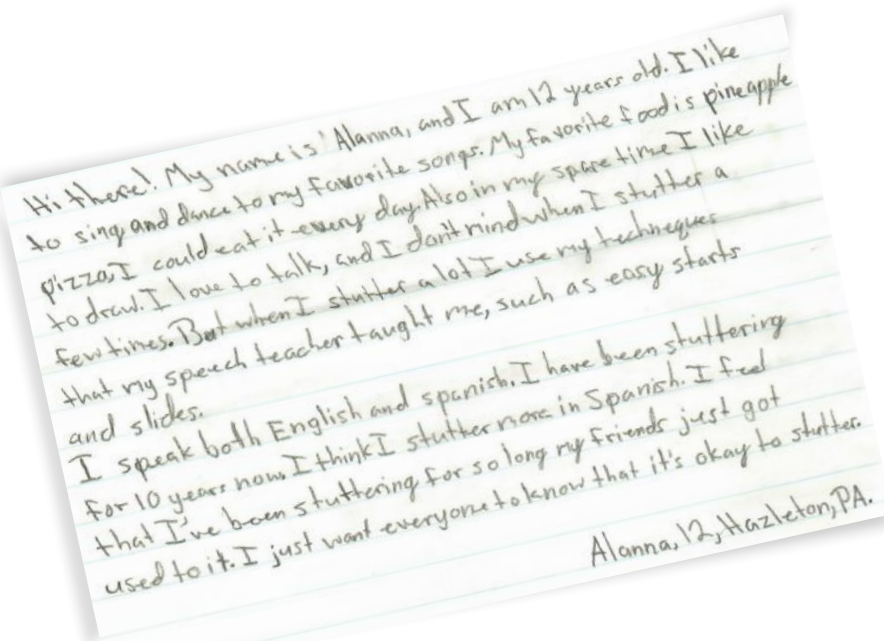 Hi there! My name is Alanna, and I am 12 years old. I like
to sing and dance to my favorite songs. My favorite food is pineapple
pizza, I could eat it every day. Also in my spare time I like
to draw. I love to talk, and I don't mind when I stutter a
few times. But when I stutter a lot I use my techneques
that my speech teacher taught me, such as easy starts
and slides.
I speak both English and spanish. I have been stuttering
for 10 years now. I think I stutter more in Spanish. I feel
that I've been stuttering for so long my friends just got
used to it. I just want everyone to know that it's okay to stutter.
Alanna, 12, Hazleton, PA.